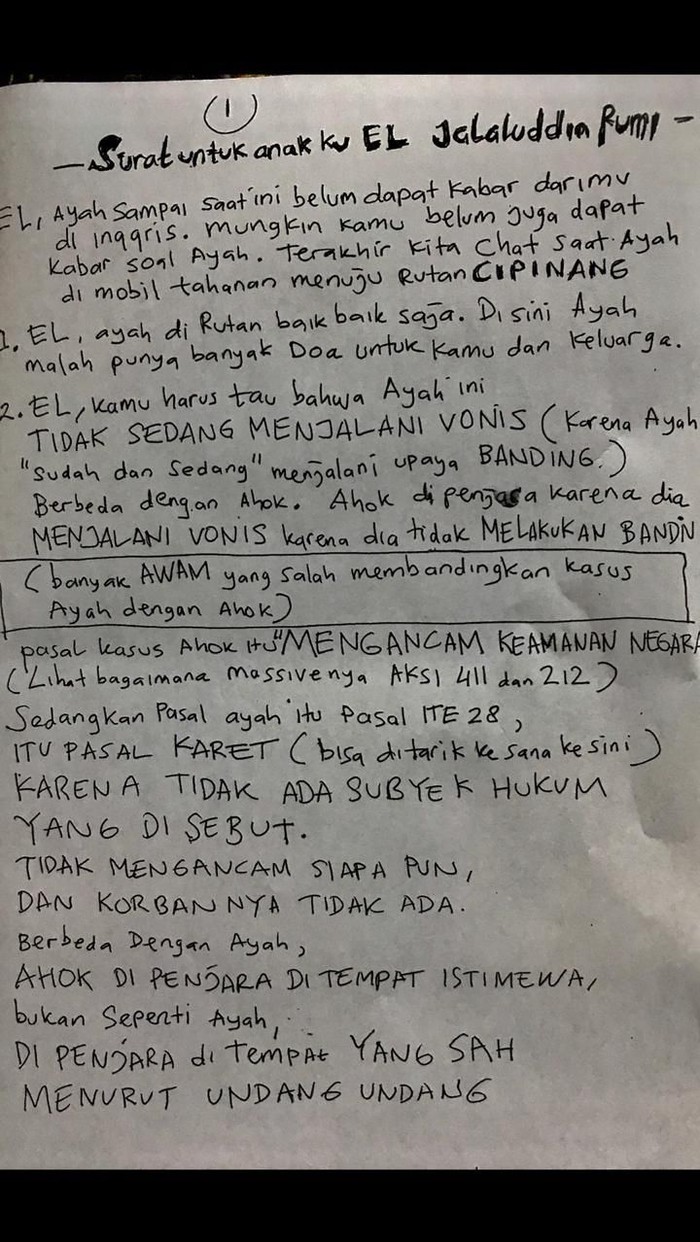 1
— Surat untuk anak ku EL Jalaluddin Rumi —
EL, Ayah sampai saat ini belum dapat kabar darimu
di inggris. mungkin kamu belum juga dapat
kabar soal Ayah. Terakhir kita Chat saat Ayah
di mobil tahanan menuju Rutan CIPINANG
1. EL, ayah di Rutan baik baik saja. Disini Ayah
malah punya banyak Doa untuk kamu dan keluarga.
2. EL, kamu harus tau bahwa Ayah ini
TIDAK SEDANG MENJALANI VONIS (Karena Ayah
"sudah dan sedang" menjalani upaya BANDING.)
Berbeda dengan Ahok. Ahok di penjara karena dia
MENJALANI VONIS karena dia tidak MELAKUKAN BANDIN
(banyak AWAM yang salah membandingkan kasus
Ayah dengan Ahok)
pasal kasus Ahok itu "MENGANCAM KEAMANAN NEGARA
(Lihat bagaimana Massivenya AKSI 411 dan 212)
Sedangkan Pasal ayah itu Pasal ITE 28,
ITU PASAL KARET (bisa ditarik ke sana ke sini)
KARENA TIDAK ADA SUBYEK HUKUM
YANG DI SEBUT.
TIDAK MENGANCAM SIAPA PUN,
DAN KORBAN NYA TIDAK ADA.
Berbeda Dengan Ayah,
AHOK DI PENJARA DI TEMPAT ISTIMEWA,
bukan Seperti Ayah,
DI PENJARA di TEMPAT YANG SAH
MENURUT UNDANG UNDANG